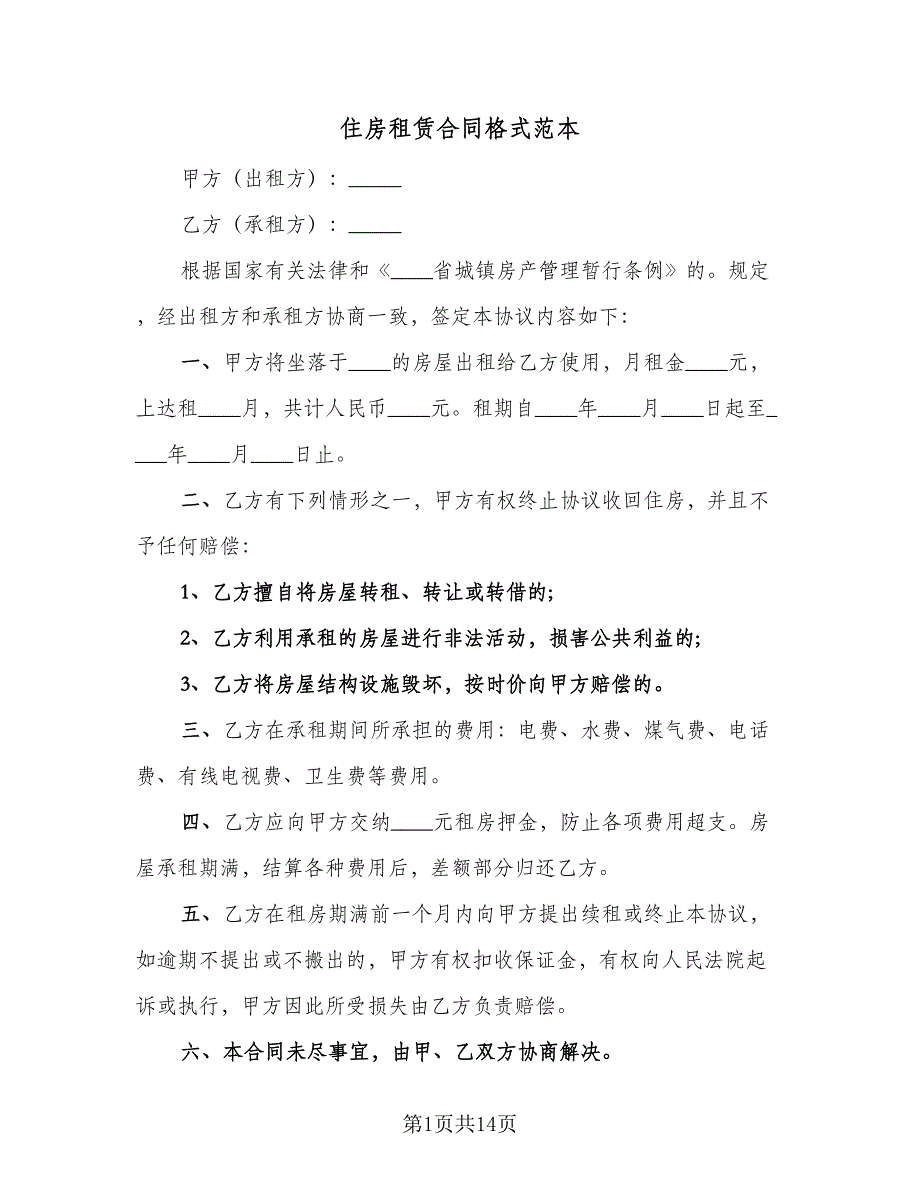 住房租赁合同格式范本
甲方（出租方）：_____
乙方（承租方）：_____
根据国家有关法律和《____省城镇房产管理暂行条例》的。规定
，经出租方和承租方协商一致，签定本协议内容如下：
一、甲方将坐落于____的房屋出租给乙方使用，月租金____元，
上达租____月，共计人民币____元。租期自____年____月____日起至_
___年____月____日止。
二、乙方有下列情形之一，甲方有权终止协议收回住房，并且不
予任何赔偿：
1、乙方擅自将房屋转租、转让或转借的;
2、乙方利用承租的房屋进行非法活动，损害公共利益的;
3、乙方将房屋结构设施毁坏，按时价向甲方赔偿的。
三、乙方在承租期间所承担的费用：电费、水费、煤气费、电话
费、有线电视费、卫生费等费用。
四、乙方应向甲方交纳____元租房押金，防止各项费用超支。房
屋承租期满，结算各种费用后，差额部分归还乙方。
五、乙方在租房期满前一个月内向甲方提出续租或终止本协议，
如逾期不提出或不搬出的，甲方有权扣收保证金，有权向人民法院起
诉或执行，甲方因此所受损失由乙方负责赔偿。
六、本合同未尽事宜，由甲、乙双方协商解决。
第1页共14页